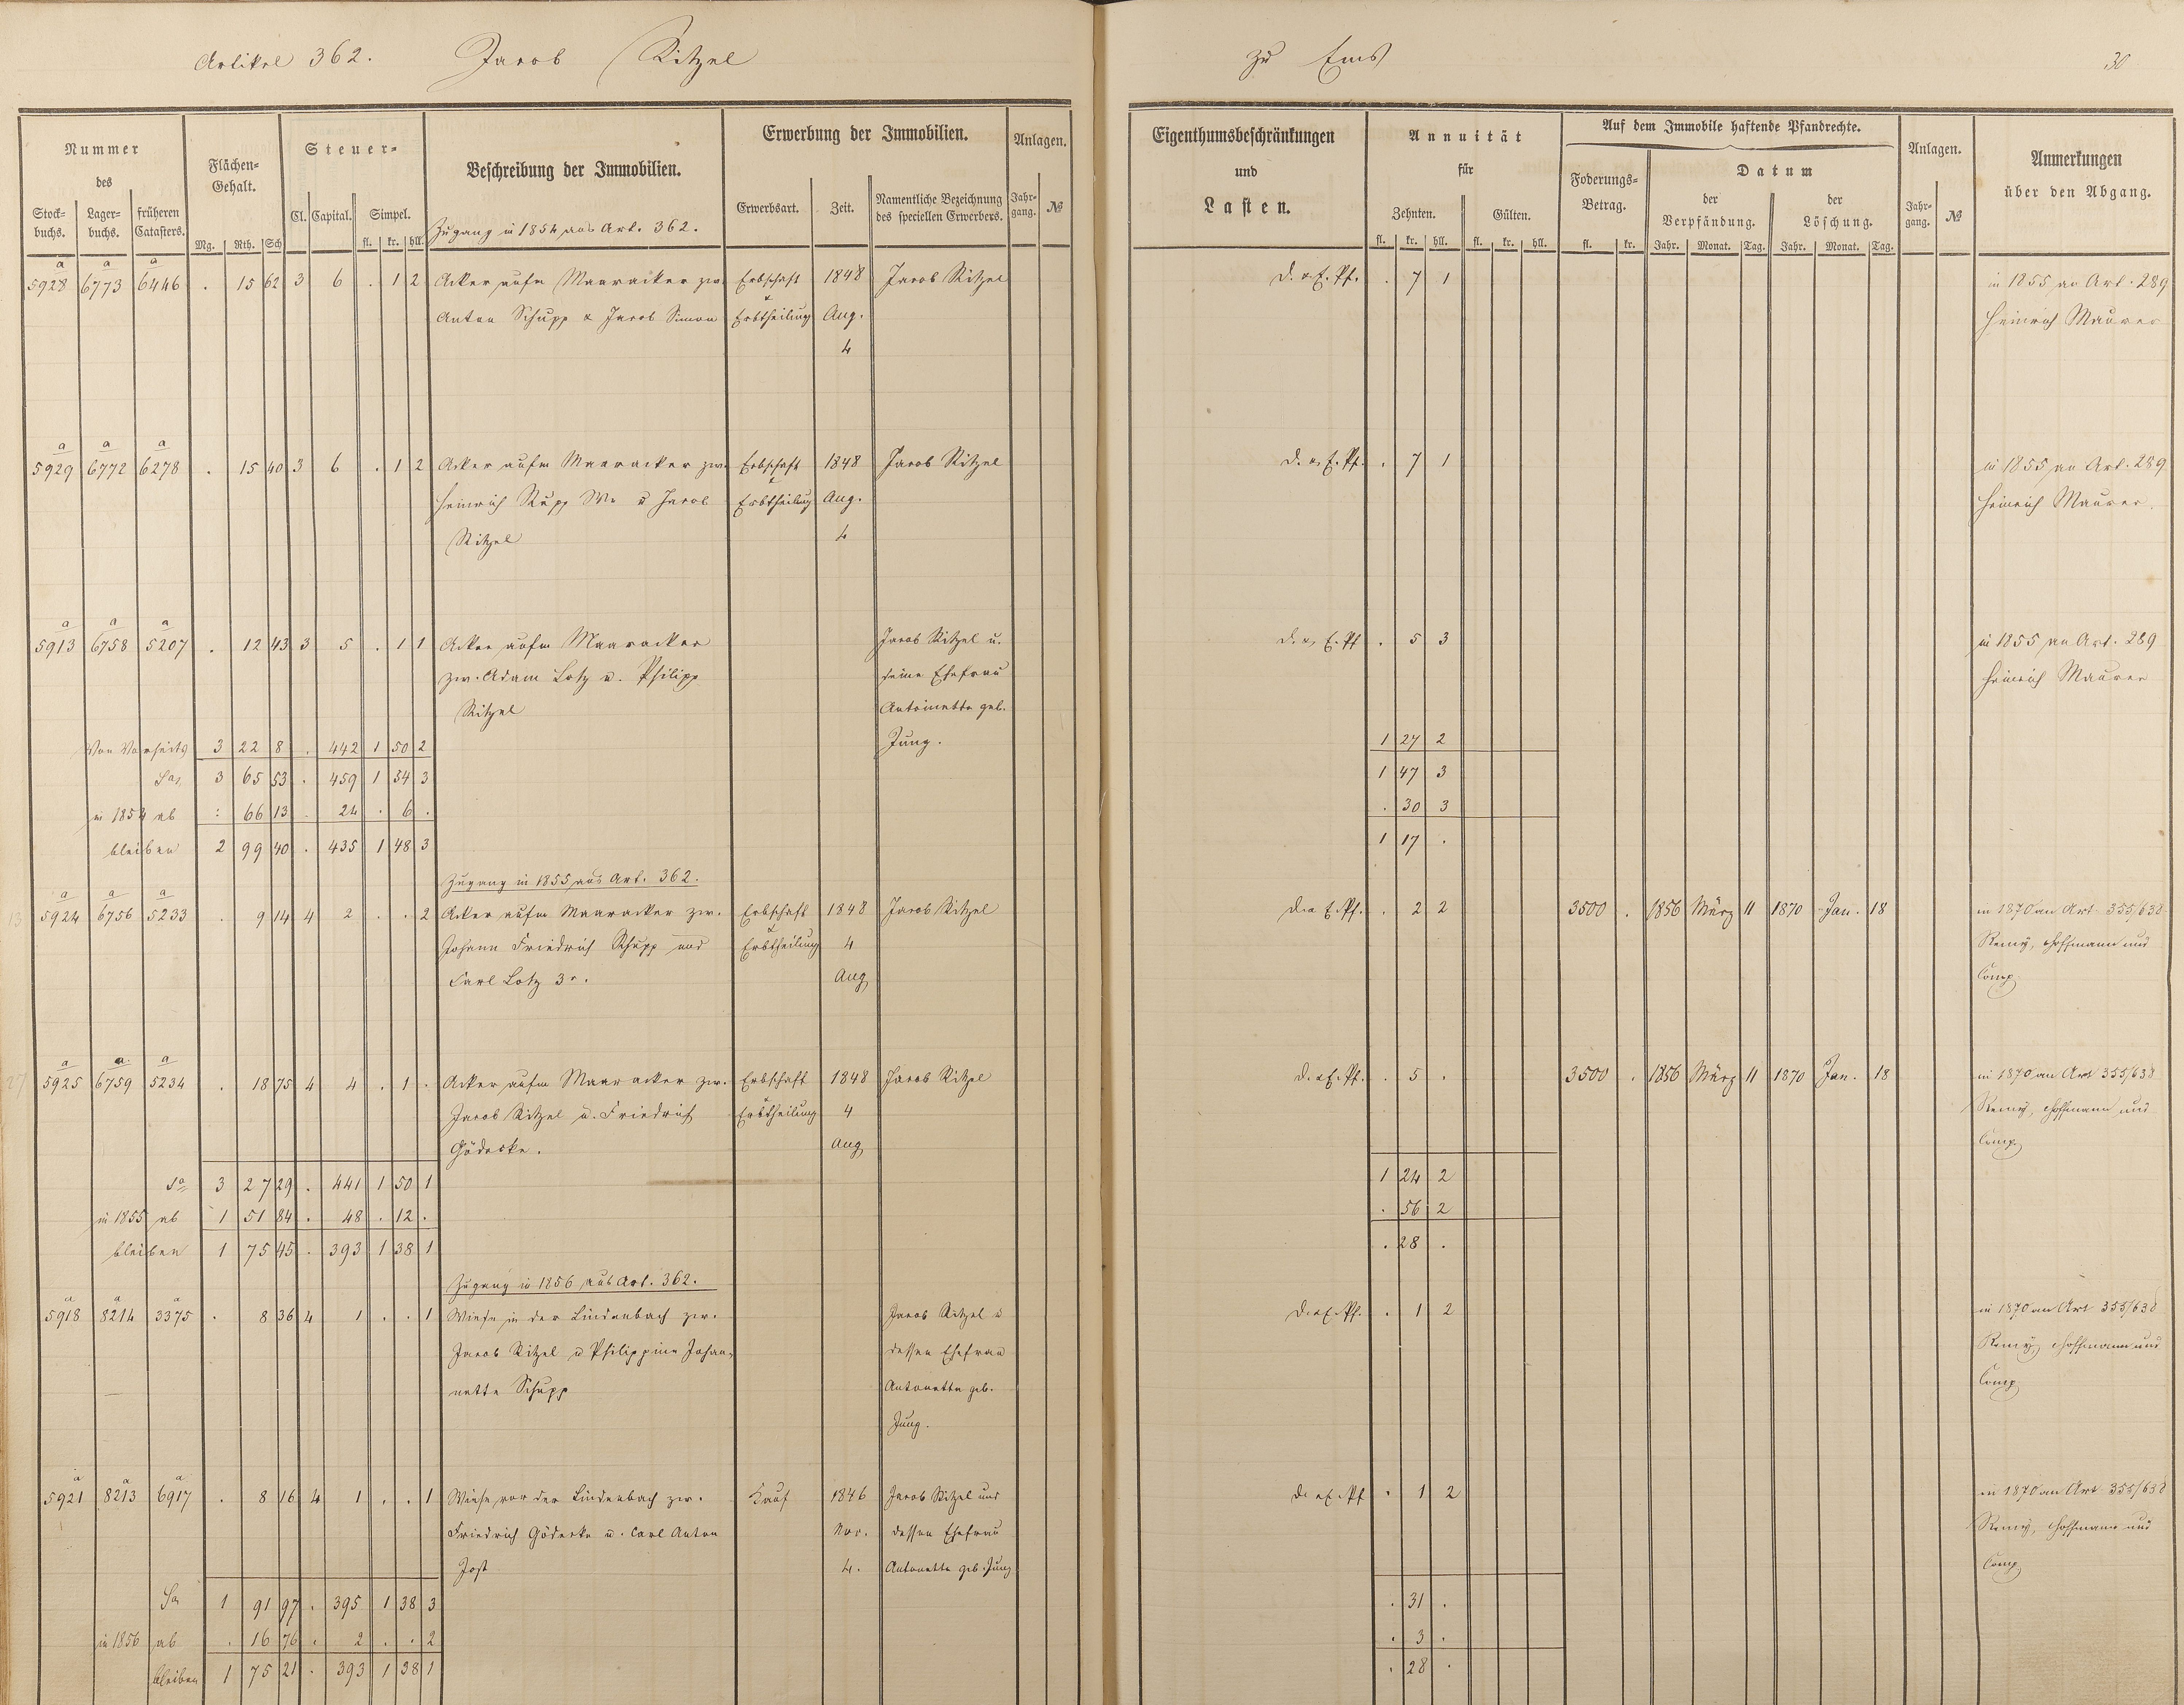 Artikel 362. Jacob Ritzel zu Ems 30
Nummer des
Stockbuchs. Lagerbuchs. früheren Catasters.
Flächen-Gehalt.
Mg. Rth. Sch
Steuer-
Cl. Capital. Simpel.
fl. kr. hll.
Beschreibung der Immobilien.
Erwerbung der Immobilien.
Erwerbsart. Zeit. Namentliche Bezeichnung des speciellen Erwerbers.
Anlagen.
Jahrgang. №
Eigenthumsbeschränkungen und Lasten.
Annuität für
Zehnten. Gülten.
fl. kr. hll. fl. kr. hll.
Auf dem Immobile haftende Pfandrechte.
Foderungs-Betrag.
fl. kr.
Datum
der Verpfändung. der Löschung.
Jahr. Monat. Tag. Jahr. Monat. Tag.
Anlagen.
Jahrgang. №
Anmerkungen über den Abgang.
Zugang in 1854 aus Art. 362.
a a a
5928 6773 6446 . 15 62 3 6 . 1 2 Acker aufm Maaracker zw. Erbschaft 1848 Jacob Ritzel D. u. E. Pf. . 7 1 in 1855 an Art. 289
Anton Schupp & Jacob Simon & Erbtheilung Aug. Heinrich Maurer
4
a a a
5929 6772 6278 . 15 40 3 6 . 1 2 Acker aufm Maaracker zw. Erbschaft 1848 Jacob Ritzel D. u. E. Pf. . 7 1 in 1855 an Art. 289
Heinrich Rupp We u Jacob & Erbtheilung Aug. Heinrich Maurer.
Ritzel 4
a a a
5913 6758 5207 . 12 43 3 5 . 1 1 Acker aufm Maaracker Jacob Ritzel u. D. u. E. Pf . 5 3 in 1855 an Art. 289
zw. Adam Lotz u. Philipp seine Ehefrau Heinrich Maurer
Ritzel Antoinette geb.
Von Vorseite 3 22 8 . 442 1 50 2 Jung. 1 27 2
Sa 3 65 53 . 459 1 54 3 1 47 3
in 1854 ab : 66 13 . 24 . 6 . . 30 3
bleiben 2 99 40 . 435 1 48 3 1 17 .
Zugang in 1855 aus Art. 362.
a a a
13 5924 6756 5233 . 9 14 4 2 . . 2 Acker aufm Maaracker zw. Erbschaft 1848 Jacob Ritzel D. u. E. Pf. . 2 2 3500 . 1856 März 11 1870 Jan. 18 in 1870 an Art. 355/638
Johann Friedrich Schupp und & Erbtheilung 4 Remy, Hoffmann und
Carl Lotz 3r. Aug Comp.
a a a
27 5925 6759 5234 . 18 75 4 4 . 1 . Acker aufm Maaracker zw. Erbschaft 1848 Jacob Ritzel D. u. E. Pf. . 5 . 3500 . 1856 März 11 1870 Jan. 18 in 1870 an Art 355/638
Jacob Ritzel u. Friedrich & Erbtheilung 4 Remy, Hoffmann und
Gödecke. Aug Comp.
Sa 3 27 29 . 441 1 50 1 1 24 2
in 1855 ab 1 51 84 . 48 . 12 . . 56 2
bleiben 1 75 45 . 393 1 38 1 . 28 .
Zugang in 1856 aus Art. 362.
a a a
5918 8214 3375 . 8 36 4 1 . . 1 Wiese in der Lindenbach zw. Jacob Ritzel u D. u. E. Pf. . 1 2 in 1870 an Art 355/638
Jacob Ritzel u Philippine Johan- dessen Ehefrau Remy, Hoffmann und
nette Schupp Antonette geb. Comp
Jung.
a a a
5921 8213 6917 . 8 16 4 1 . . 1 Wiese vor der Lindenbach zw. Kauf 1846 Jacob Ritzel und D. u. E. Pf . 1 2 in 1870 an Art. 355/638
Friedrich Gödecke u. Carl Anton Nov. dessen Ehefrau Remy, Hoffmann und
Jost 4. Antonette geb. Jung Comp
Sa 1 91 97 . 395 1 38 3 . 31 .
in 1856 ab . 16 76 . 2 . . 2 . 3 .
bleiben 1 75 21 . 393 1 38 1 . 28 .